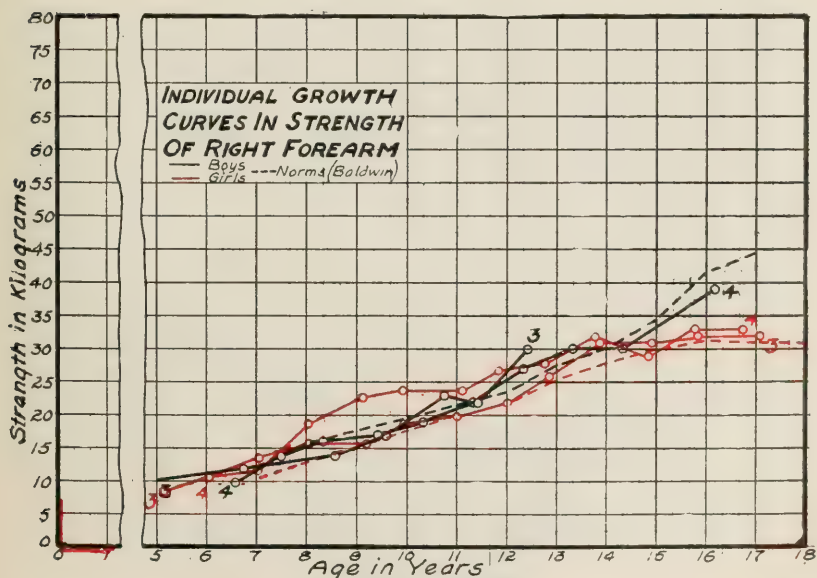 80
75
70
65
60
55
50
45
40
35
30
25
20
15
10
5
0
Strength in Kilograms
INDIVIDUAL GROWTH
CURVES IN STRENGTH
OF RIGHT FOREARM
Boys
Girls ---- Norms (Baldwin)
3
4
4
3
3 3 4 4
0 1 5 6 7 8 9 10 11 12 13 14 15 16 17 18
Age in Years